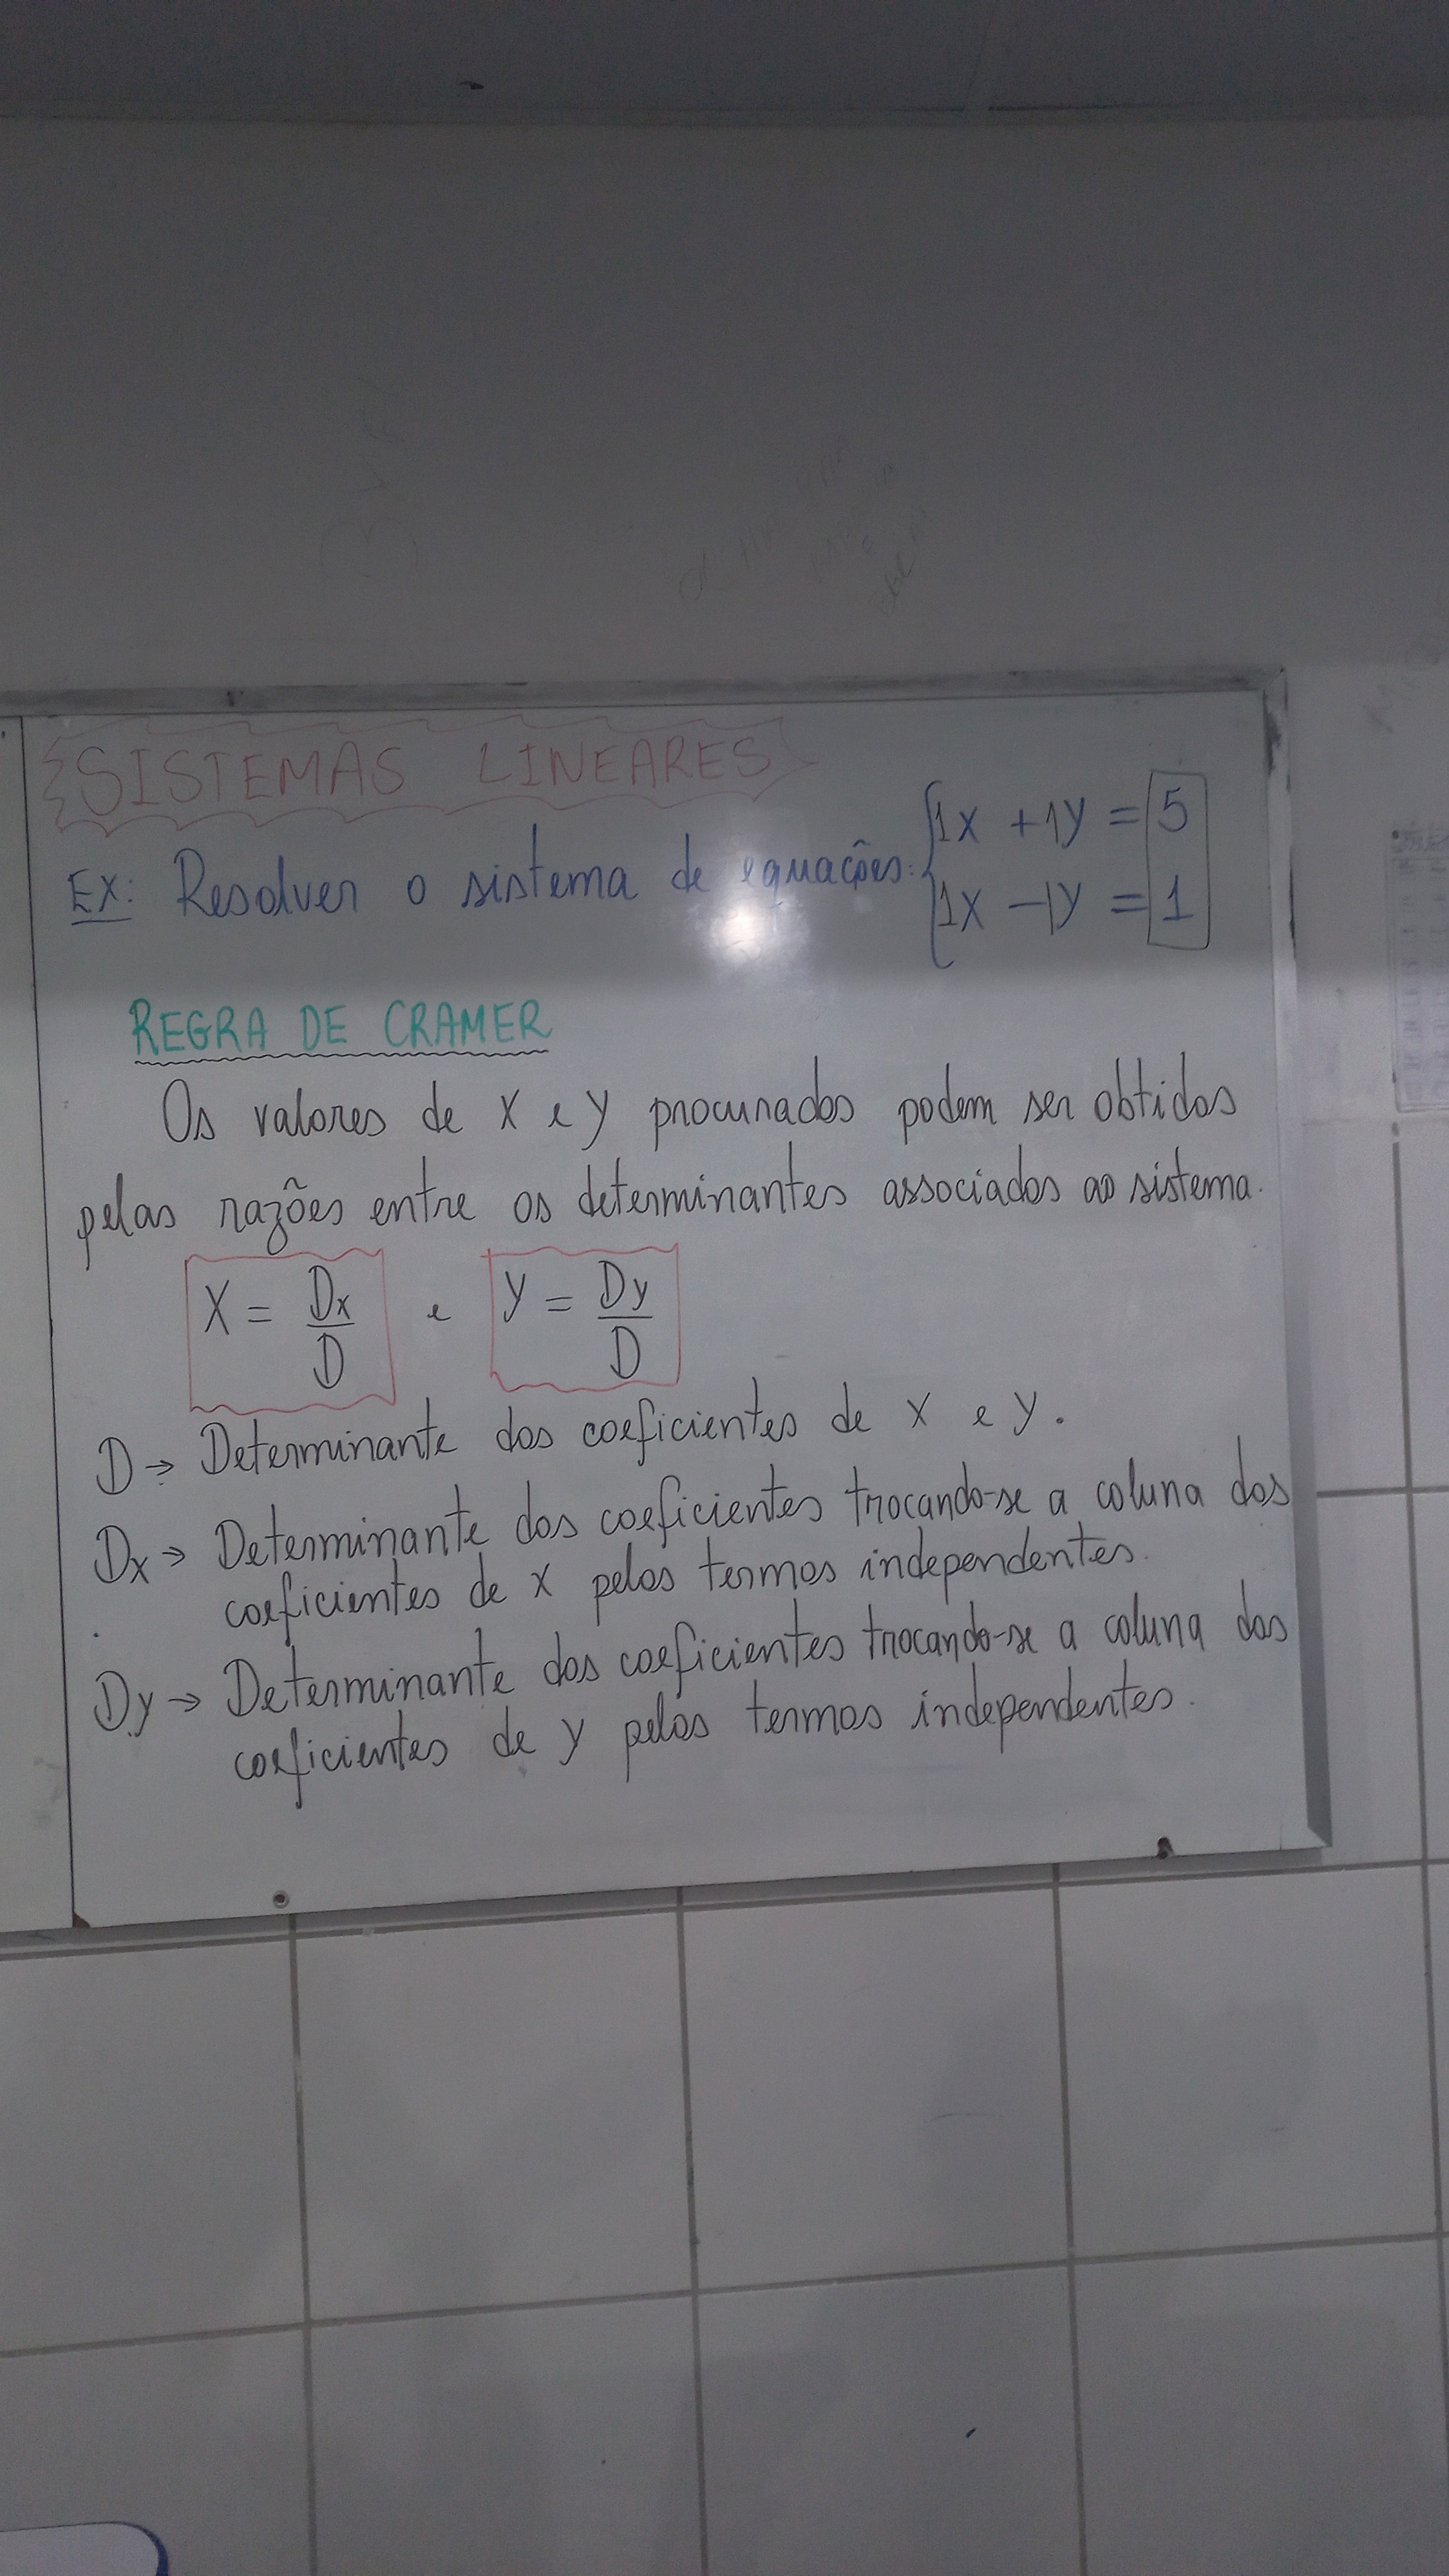 SISTEMAS LINEARES
EX: Resolver o sistema de equações: { 1x + 1y = 5
1x - 1y = 1
REGRA DE CRAMER
Os valores de x e y procurados podem ser obtidos
pelas razões entre os determinantes associados ao sistema.
X = Dx/D e Y = Dy/D
D → Determinante dos coeficientes de x e y.
Dx → Determinante dos coeficientes trocando-se a coluna dos
coeficientes de x pelos termos independentes.
Dy → Determinante dos coeficientes trocando-se a coluna dos
coeficientes de y pelos termos independentes.